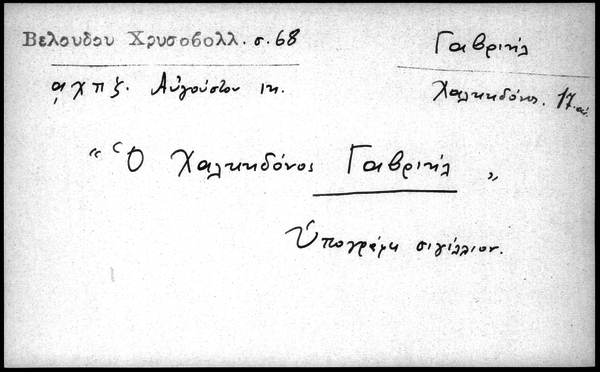 Βελουδου Χρυσοβολλ. σ. 68
Γαβριήλ
͵αχπζ. Αὐγούστου ιη.
Χαλκηδόνος. 17. αἰ.
“ Ὁ Χαλκηδόνος Γαβριήλ „
Ὑπογράφει σιγίλλιον.